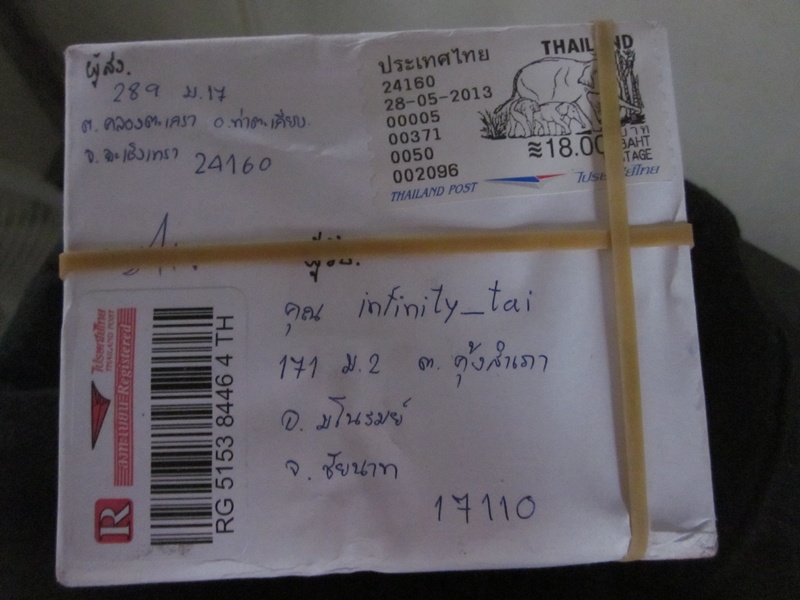 ผู้ส่ง.
289 ม.17
ต. คลองตะเกรา อ.ท่าตะเกียบ
จ.ฉะเชิงเทรา 24160
ประเทศไทย
24160
28-05-2013
00005
00371
0050
002096
THAILAND
≋18.00
บาท
BAHT
THAILAND POST
ไปรษณีย์ไทย
คุณ infinity_tai
171 ม.2 ต. คุ้งสำเภา
อ. มโนรมย์
จ. ชัยนาท
17110
ไปรษณีย์ไทย
THAILAND POST
ลงทะเบียน Registered
R
RG 5153 8446 4 TH